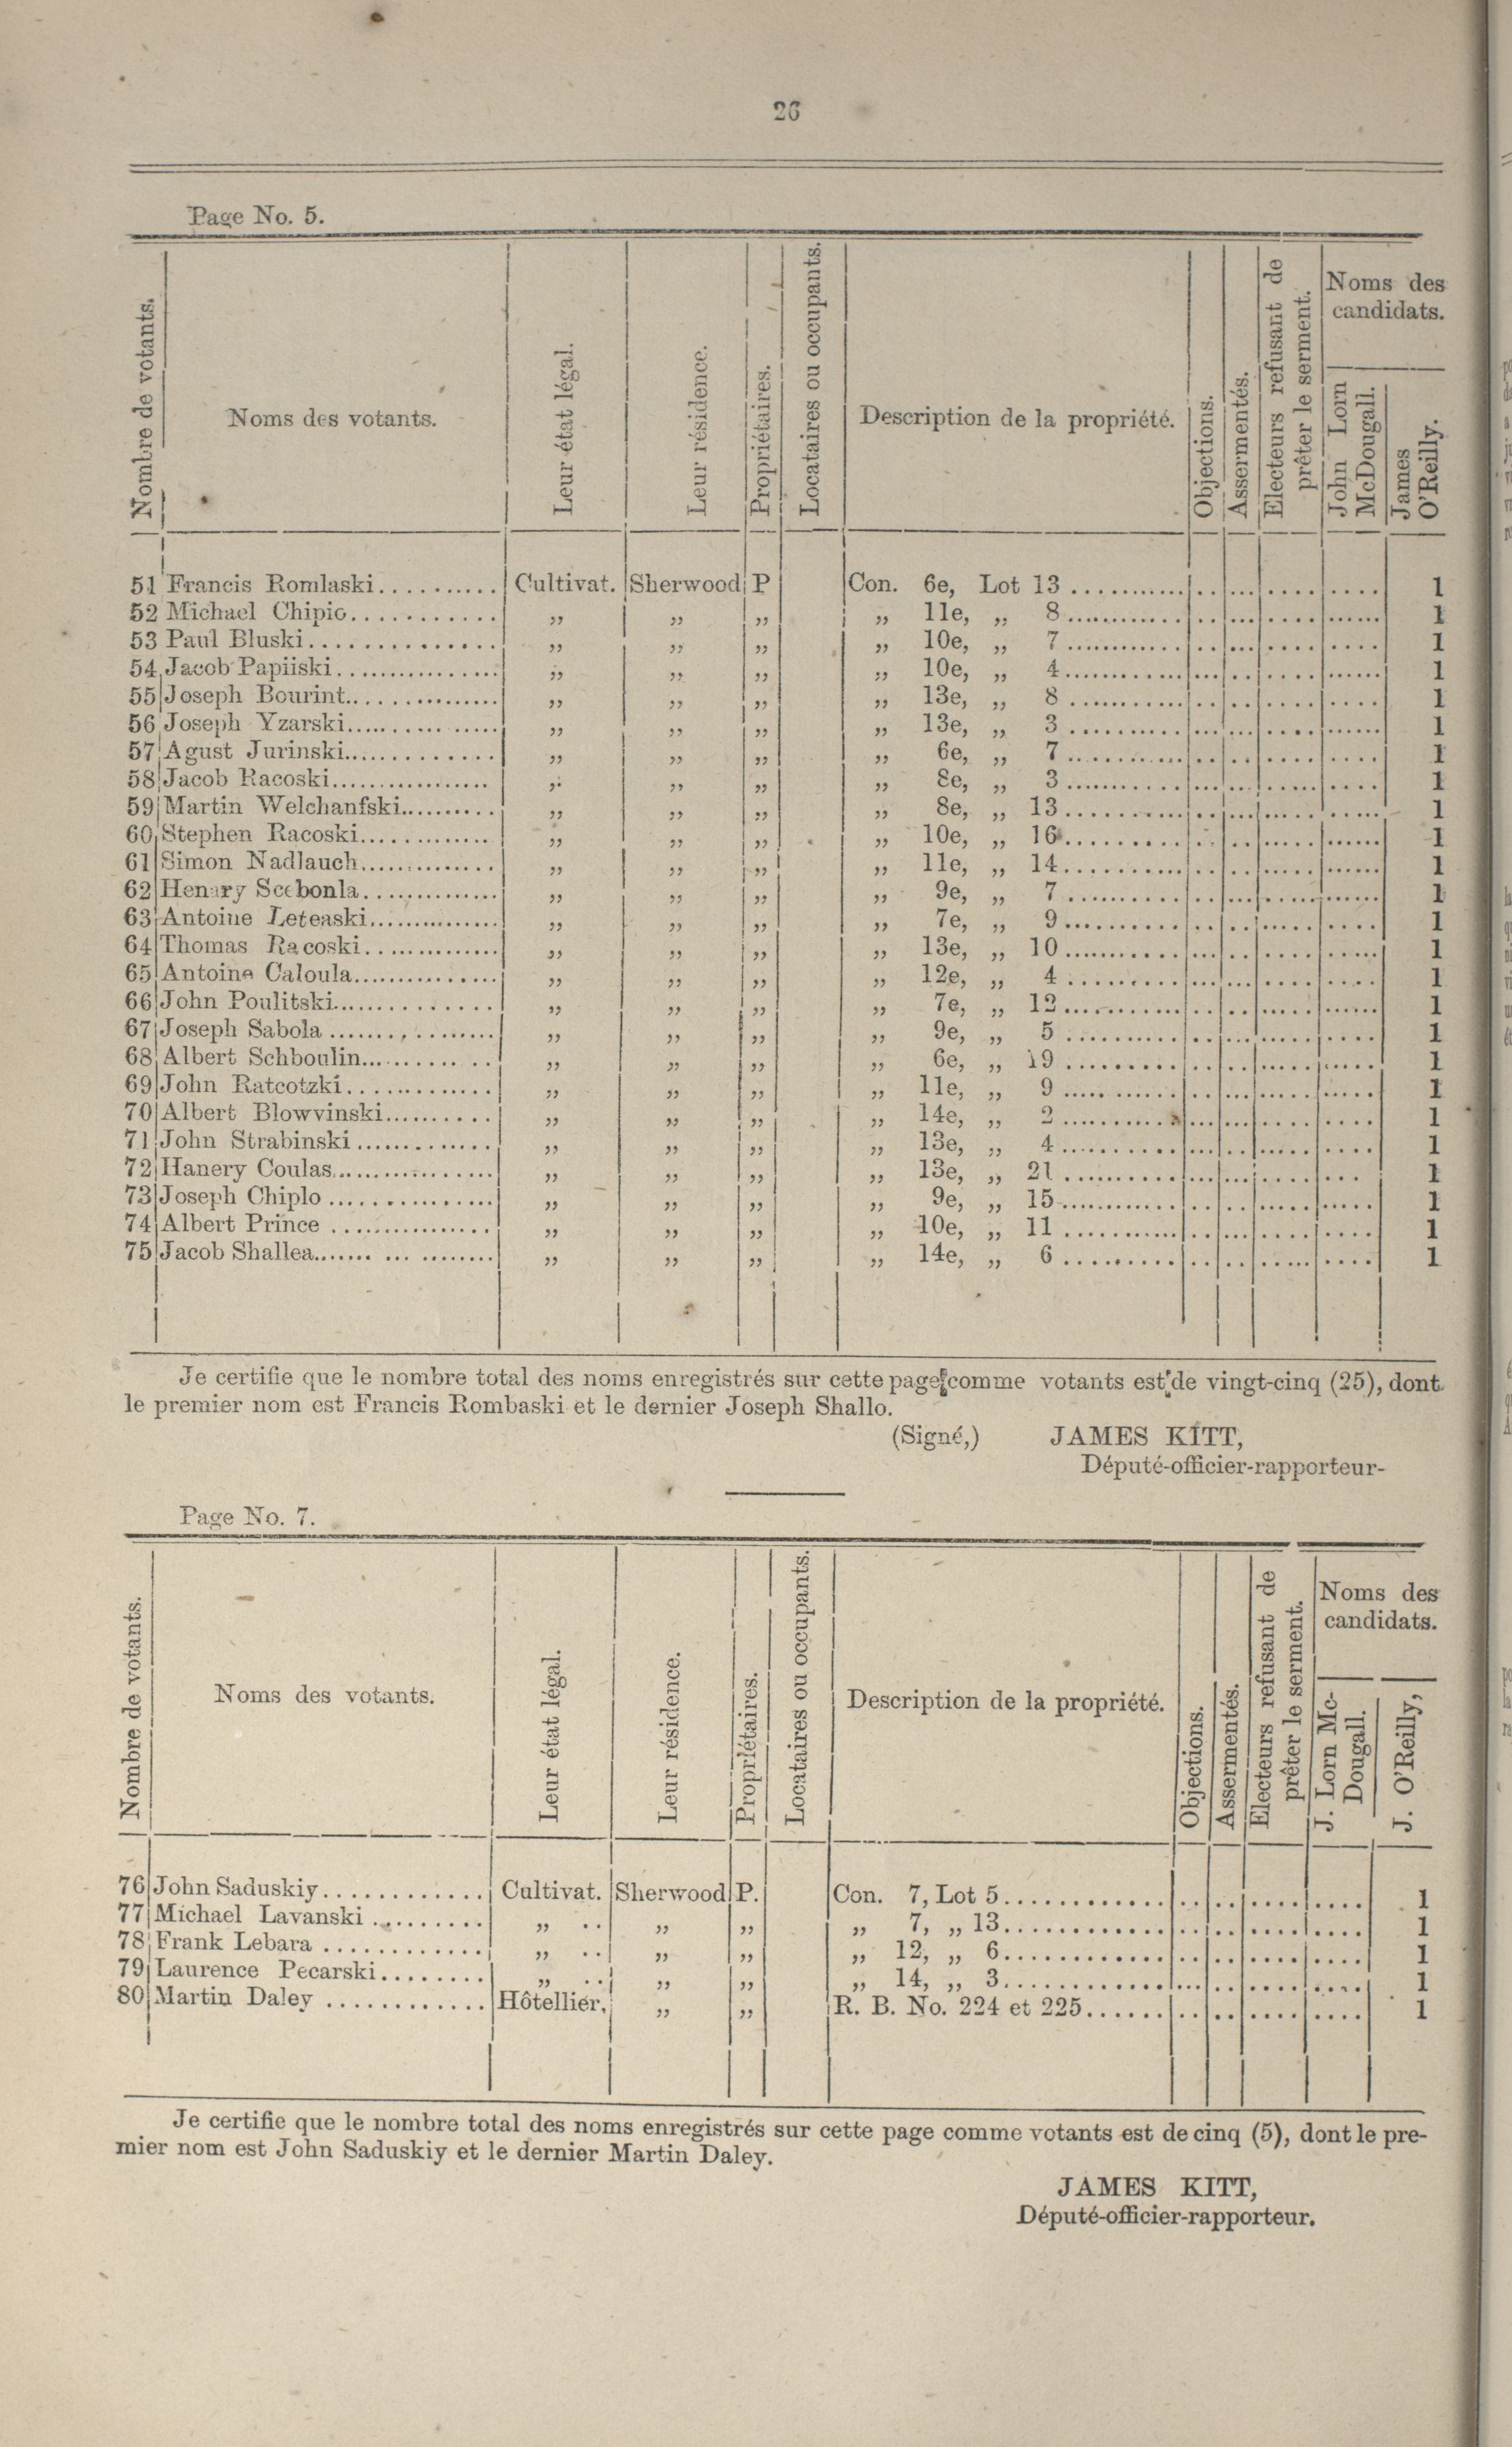 26
Page No. 5.
Nombre de votants.
Noms des votants.
Leur état légal.
Leur résidence.
Propriétaires.
Locataires ou occupants.
Description de la propriété.
Objections.
Assermentés.
Electeurs refusant de
prêter le serment.
Noms des
candidats.
John Lorn
McDougall.
James
O'Reilly.
51 Francis Romlaski.......... Cultivat. Sherwood P Con. 6e, Lot 13 ........... 1
52 Michael Chipio............ „ „ „ „ 11e, „ 8............ 1
53 Paul Bluski............... „ „ „ „ 10e, „ 7............ 1
54 Jacob Papiiski............... „ „ „ „ 10e, „ 4............ 1
55 Joseph Bourint............... „ „ „ „ 13e, „ 8 ........... 1
56 Joseph Yzarski............... „ „ „ „ 13e, „ 3 ........... 1
57 Agust Jurinski.............. „ „ „ „ 6e, „ 7............ 1
58 Jacob Racoski................ „ „ „ „ 8e, „ 3............ 1
59 Martin Welchanfski.......... „ „ „ „ 8e, „ 13............ 1
60 Stephen Racoski............. „ „ „ „ 10e, „ 16........... 1
61 Simon Nadlauch.............. „ „ „ „ 11e, „ 14............ 1
62 Henary Scebonla.............. „ „ „ „ 9e, „ 7 ........... 1
63 Antoine Leteaski.............. „ „ „ „ 7e, „ 9............ 1
64 Thomas Racoski.............. „ „ „ „ 13e, „ 10............ 1
65 Antoine Caloula............... „ „ „ „ 12e, „ 4 ........... 1
66 John Poulitski............... „ „ „ „ 7e, „ 12............ 1
67 Joseph Sabola ............... „ „ „ „ 9e, „ 5 ........... 1
68 Albert Schboulin............. „ „ „ „ 6e, „ 19 ........... 1
69 John Ratcotzki.............. „ „ „ „ 11e, „ 9 ........... 1
70 Albert Blowvinski.......... „ „ „ „ 14e, „ 2............ 1
71 John Strabinski............. „ „ „ „ 13e, „ 4............ 1
72 Hanery Coulas............... „ „ „ „ 13e, „ 21........... 1
73 Joseph Chiplo ............... „ „ „ „ 9e, „ 15............ 1
74 Albert Prince ............... „ „ „ „ 10e, „ 11 ........... 1
75 Jacob Shallea....... ... ........ „ „ „ „ 14e, „ 6 .......... 1
Je certifie que le nombre total des noms enregistrés sur cette page comme votants est de vingt-cinq (25), dont
le premier nom est Francis Rombaski et le dernier Joseph Shallo.
(Signé,) JAMES KITT,
Député-officier-rapporteur-
Page No. 7.
Nombre de votants.
Noms des votants.
Leur état légal.
Leur résidence.
Propriétaires.
Locataires ou occupants.
Description de la propriété.
Objections.
Assermentés.
Electeurs refusant de
prêter le serment.
Noms des
candidats.
J. Lorn Mc-
Dougall.
J. O'Reilly,
76 John Saduskiy............. Cultivat. Sherwood P. Con. 7, Lot 5............. 1
77 Michael Lavanski ......... „ .. „ „ „ 7, „ 13............. 1
78 Frank Lebara ............. „ .. „ „ „ 12, „ 6............. 1
79 Laurence Pecarski........ „ .. „ „ „ 14, „ 3............. 1
80 Martin Daley ............ Hôtellier. „ „ R. B. No. 224 et 225...... 1
Je certifie que le nombre total des noms enregistrés sur cette page comme votants est de cinq (5), dont le pre-
mier nom est John Saduskiy et le dernier Martin Daley.
JAMES KITT,
Député-officier-rapporteur.